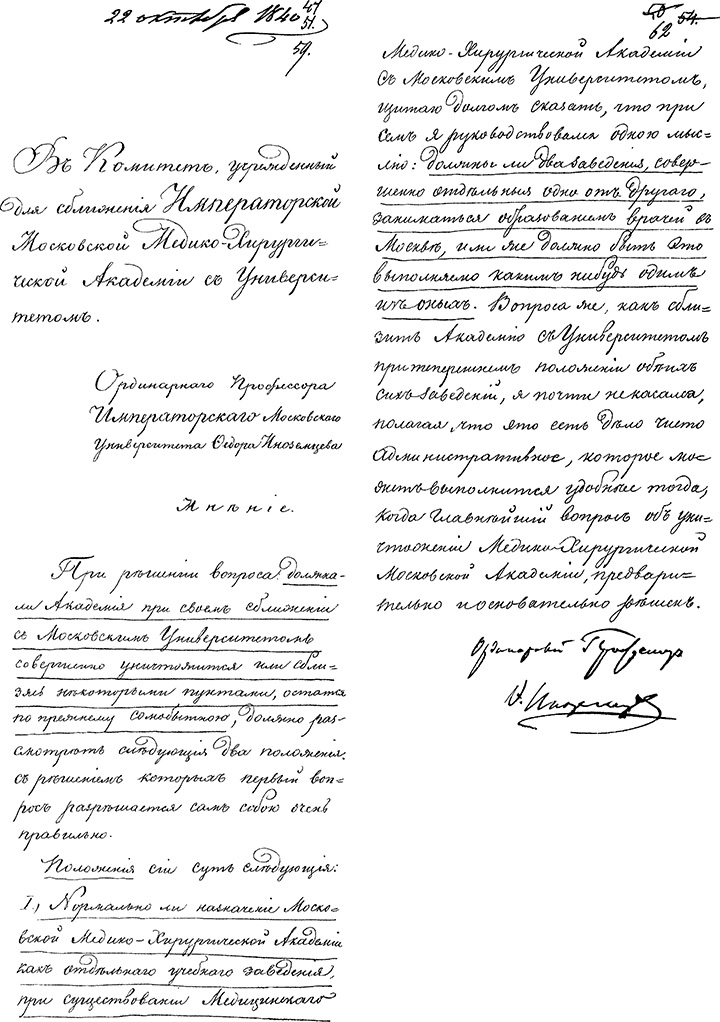 22 октября 1840
47
51.
59.
Въ Комитетъ, учрежденный
для сближенія Императорской
Московской Медико-Хирурги-
ческой Академіи съ Универси-
тетомъ.
Ординарнаго Профессора
Императорскаго Московскаго
Университета Ѳедора Иноземцева
Мнѣніе.
При рѣшеніи вопроса: должна-
ли Академія при своемъ сближеніи
съ Московскимъ Университетомъ
совершенно уничтожится или сбли-
зясь нѣкоторыми пунктами, остатся
по прежнему самобытною, должно раз-
смотрѣть слѣдующія два положенія,
съ рѣшеніемъ которыхъ первый воп-
росъ разрѣшается самъ собою очень
правильно.
Положенія сіи суть слѣдующія:
I.) Нормально ли назначеніе Моско-
вской Медико-Хирургической Академіи
какъ отдѣльнаго учебнаго заведенія,
при существованіи Медицинскаго
50 54.
62
Медико-Хирургической Академіи
съ Московскимъ Университетомъ,
щитаю долгомъ сказать, что при
семъ я руководствовался одною мыс-
лію: должны ли два заведенія, совер-
шенно отдѣльныя одно отъ другаго,
заниматься образованіемъ врачей въ
Москвѣ, или же должно быть это
выполняемо какимъ нибудь однимъ
изъ оныхъ. Вопроса же, какъ сбли-
зить Академію съ Университетомъ
при теперешнемъ положеніи обѣихъ
сихъ заведеній, я почти не касался,
полагая, что это есть дѣло чисто
административное, которое мо-
жетъ выполнится удобнѣе тогда,
когда главнѣйшій вопросъ объ уни-
чтоженіи Медико-Хирургической
Московской Академіи, предвари-
тельно и основательно рѣшенъ.
Ординарный Профессоръ
Ѳ. Иноземцевъ